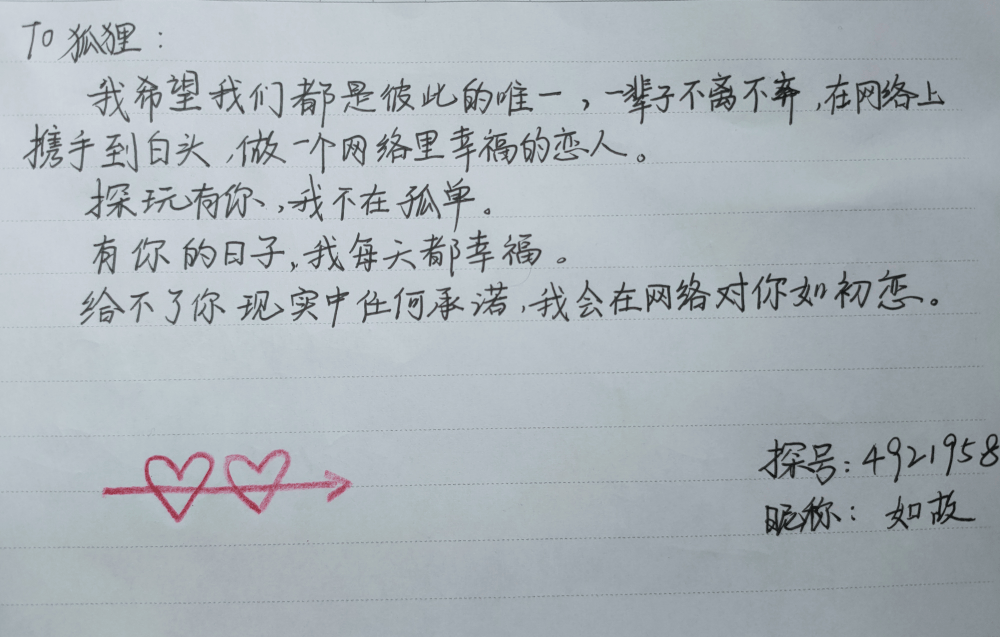 To 狐狸：
我希望我们都是彼此的唯一，一辈子不离不弃，在网络上
携手到白头，做一个网络里幸福的恋人。
探玩有你，我不在孤单。
有你的日子，我每天都幸福。
给不了你现实中任何承诺，我会在网络对你如初恋。
探号：4921958
昵称：如故